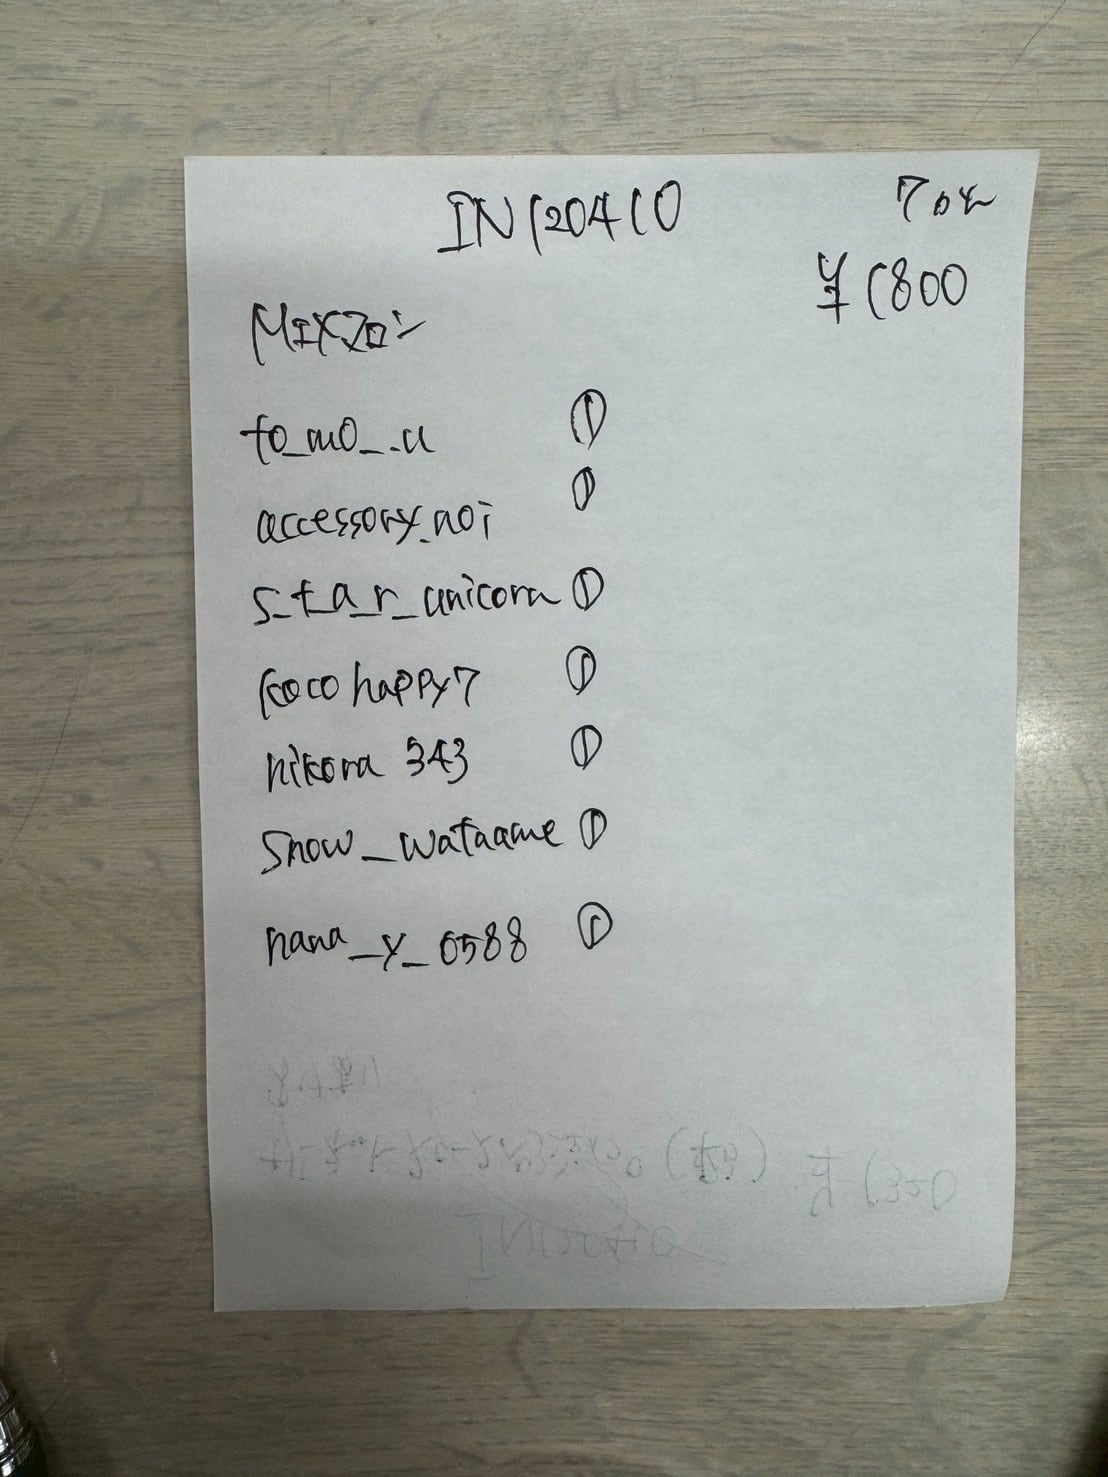 IN120410
¥1800
MIXフロン
to_mo_.u ①
accessory.aoi ①
s_t_a_r_unicorn ①
kocohappy7 ①
nikora343 ①
snow_wataame ①
nana_y_0588 ①